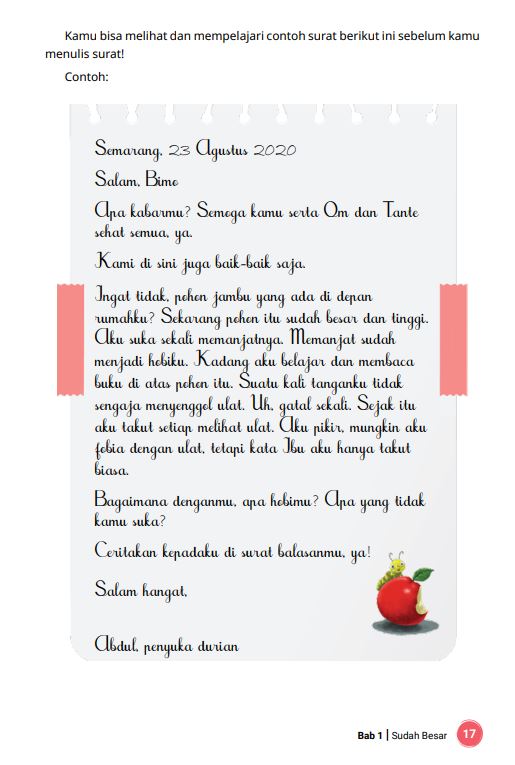 Kamu bisa melihat dan mempelajari contoh surat berikut ini sebelum kamu
menulis surat!
Contoh:
Semarang, 23 Agustus 2020
Salam, Bimo
Apa kabarmu? Semoga kamu serta Om dan Tante
sehat semua, ya.
Kami di sini juga baik-baik saja.
Ingat tidak, pohon jambu yang ada di depan
rumahku? Sekarang pohon itu sudah besar dan tinggi.
Aku suka sekali memanjatnya. Memanjat sudah
menjadi hobiku. Kadang aku belajar dan membaca
buku di atas pohon itu. Suatu kali tanganku tidak
sengaja menyenggol ulat. Uh, gatal sekali. Sejak itu
aku takut setiap melihat ulat. Aku pikir, mungkin aku
fobia dengan ulat, tetapi kata Ibu aku hanya takut
biasa.
Bagaimana denganmu, apa hobimu? Apa yang tidak
kamu suka?
Ceritakan kepadaku di surat balasanmu, ya!
Salam hangat,
Abdul, penyuka durian
Bab 1 | Sudah Besar 17